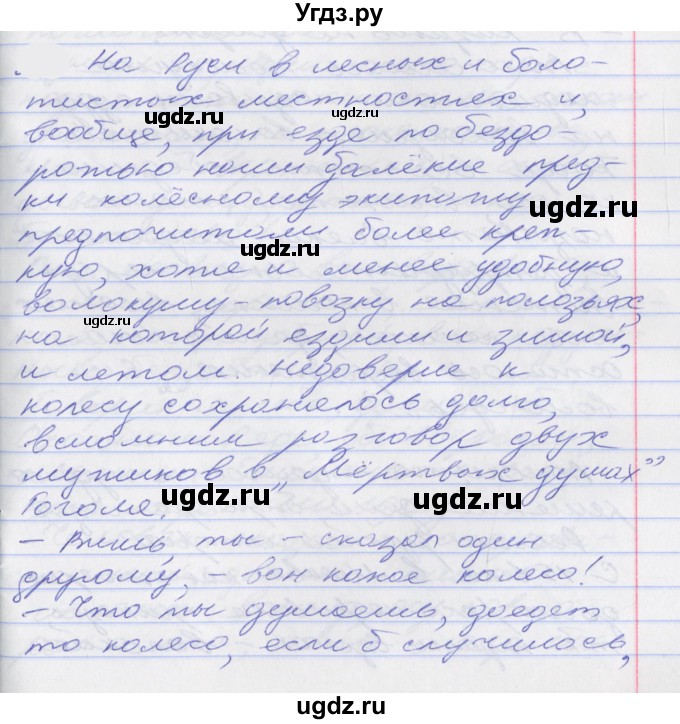 Угдз.ру
На Руси в лесных и боло-
тистых местностях и,
вообще, при езде по бездо-
рожью наши далёкие пред-
ки колёсному экипажу
предпочитали более креп-
кую, хотя и менее удобную,
волокушу – повозку на полозьях,
на которой ездили и зимой,
и летом. Недоверие к
колесу сохранялось долго,
вспомним разговор двух
мужиков в „Мёртвых душах”
Гоголя:
– Вишь ты – сказал один
другому, – вон какое колесо!
– Что ты думаешь, доедет
то колесо, если б случилось,
ugdz.ru
ugdz.ru
ugdz.ru
ugdz.ru
ugdz.ru
ugdz.ru
ugdz.ru
ugdz.ru
ugdz.ru
ugdz.ru